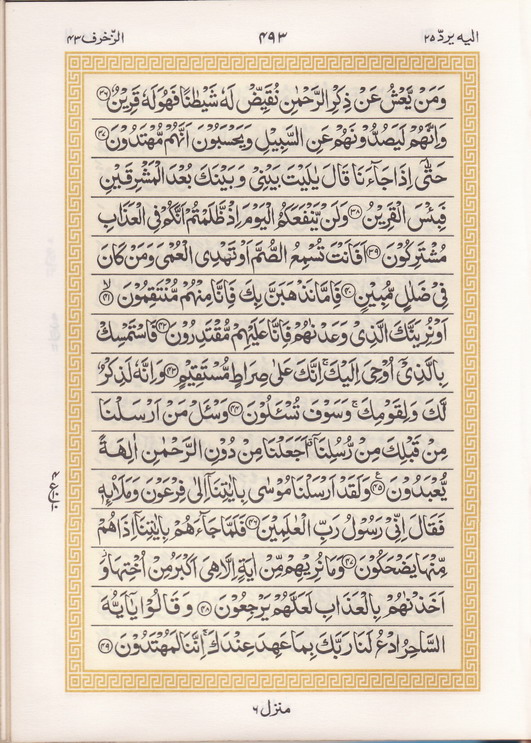 الیه یردّ ۲۵
۴۹۳
الزّخرف ۴۳
وَمَنْ يَّعْشُ عَنْ ذِكْرِ الرَّحْمٰنِ نُقَيِّضْ لَهٗ شَيْطٰنًا فَهُوَ لَهٗ قَرِيْنٌ ﴿۳۶﴾
وَاِنَّهُمْ لَيَصُدُّوْنَهُمْ عَنِ السَّبِيْلِ وَيَحْسَبُوْنَ اَنَّهُمْ مُّهْتَدُوْنَ ﴿۳۷﴾
حَتّٰۤى اِذَا جَآءَنَا قَالَ يٰلَيْتَ بَيْنِىْ وَبَيْنَكَ بُعْدَ الْمَشْرِقَيْنِ
فَبِئْسَ الْقَرِيْنُ ﴿۳۸﴾ وَلَنْ يَّنْفَعَكُمُ الْيَوْمَ اِذْ ظَّلَمْتُمْ اَنَّكُمْ فِى الْعَذَابِ
مُشْتَرِكُوْنَ ﴿۳۹﴾ اَفَاَنْتَ تُسْمِعُ الصُّمَّ اَوْ تَهْدِى الْعُمْىَ وَمَنْ كَانَ
فِىْ ضَلٰلٍ مُّبِيْنٍ ﴿۴۰﴾ فَاِمَّا نَذْهَبَنَّ بِكَ فَاِنَّا مِنْهُمْ مُّنْتَقِمُوْنَ ۙ﴿۴۱﴾
اَوْ نُرِيَنَّكَ الَّذِىْ وَعَدْنٰهُمْ فَاِنَّا عَلَيْهِمْ مُّقْتَدِرُوْنَ ﴿۴۲﴾ فَاسْتَمْسِكْ
بِالَّذِىْۤ اُوْحِىَ اِلَيْكَ ۚ اِنَّكَ عَلٰى صِرَاطٍ مُّسْتَقِيْمٍ ﴿۴۳﴾ وَاِنَّهٗ لَذِكْرٌ
لَّكَ وَلِقَوْمِكَ ۚ وَسَوْفَ تُسْـَٔلُوْنَ ﴿۴۴﴾ وَسْـَٔلْ مَنْ اَرْسَلْنَا
مِنْ قَبْلِكَ مِنْ رُّسُلِنَاۤ اَجَعَلْنَا مِنْ دُوْنِ الرَّحْمٰنِ اٰلِهَةً
يُّعْبَدُوْنَ ﴿۴۵﴾ وَلَقَدْ اَرْسَلْنَا مُوْسٰى بِاٰيٰتِنَاۤ اِلٰى فِرْعَوْنَ وَمَلَا۟ئِهٖ
فَقَالَ اِنِّىْ رَسُوْلُ رَبِّ الْعٰلَمِيْنَ ﴿۴۶﴾ فَلَمَّا جَآءَهُمْ بِاٰيٰتِنَاۤ اِذَا هُمْ
مِّنْهَا يَضْحَكُوْنَ ﴿۴۷﴾ وَمَا نُرِيْهِمْ مِّنْ اٰيَةٍ اِلَّا هِىَ اَكْبَرُ مِنْ اُخْتِهَا ۫ وَ
اَخَذْنٰهُمْ بِالْعَذَابِ لَعَلَّهُمْ يَرْجِعُوْنَ ﴿۴۸﴾ وَقَالُوْا يٰۤاَيُّهَ
السَّاحِرُ ادْعُ لَنَا رَبَّكَ بِمَا عَهِدَ عِنْدَكَ ۚ اِنَّنَا لَمُهْتَدُوْنَ ﴿۴۹﴾
منزل ۶